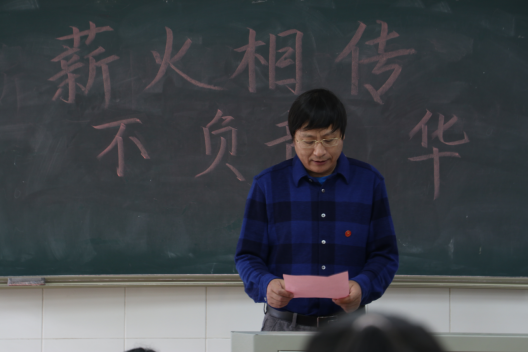 薪火相传
不负 华